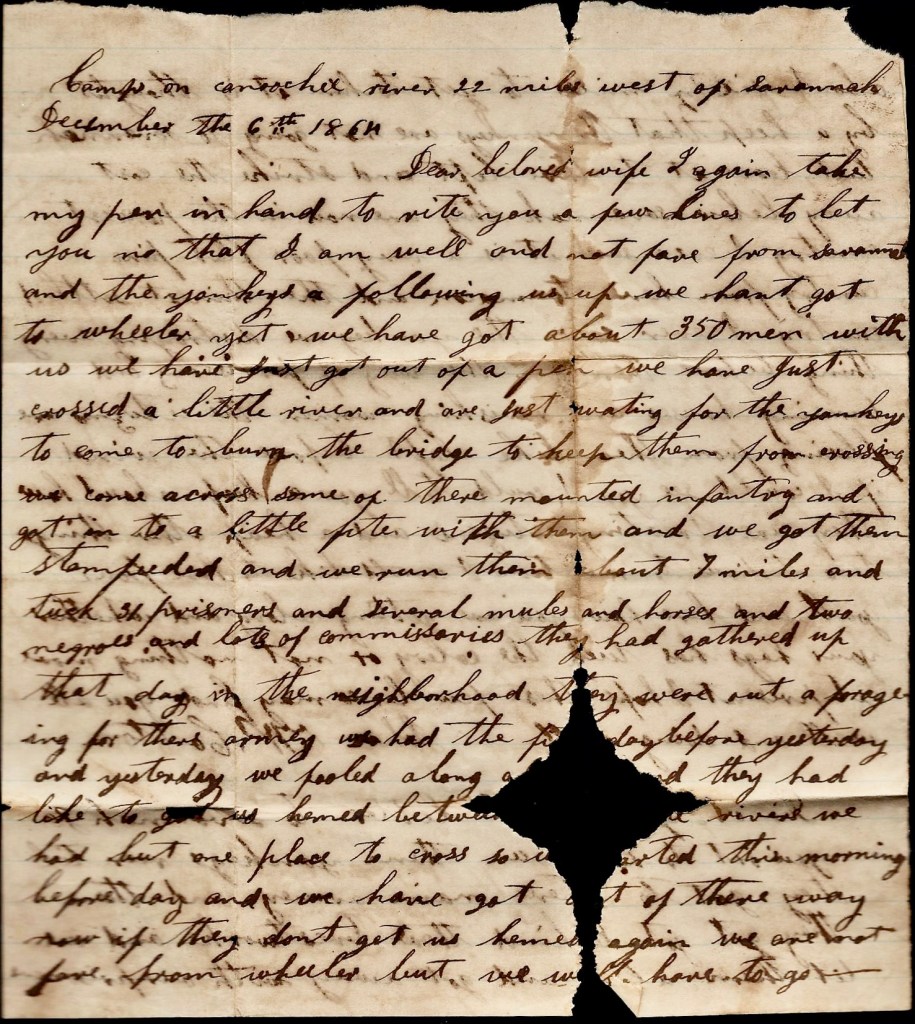 Camp on canoochee river 22 miles west of Savannah
December the 6th 1864
Dear beloved wife I again take
my pen in hand to rite you a few lines to let
you no that I am well and not fare from savannah
and the yankeys a following us up we hant got
to wheeler yet we have got about 350 men with
us we have just got out of a pen we have Just
crossed a little river and are Just wating for the yankeys
to come to burn the bridge to keep them from crossing
we come across some of there mounted infantry and
got in to a little fite with them and we got them
stampeeded and we run them bout 7 miles and
tuck 31 prisoners and several mules and horses and two
negroes and lots of commissaries they had gathered up
that day in the neighborhood they were out a forage
ing for there armey we had the day before yesterday
and yesterday we fooled along they had
like to got us hemed rivers we
had but one place to cross so this morning
before day and we have got of there way
now if they dont get us hemed again we are not
fare from wheeler but we will have to go